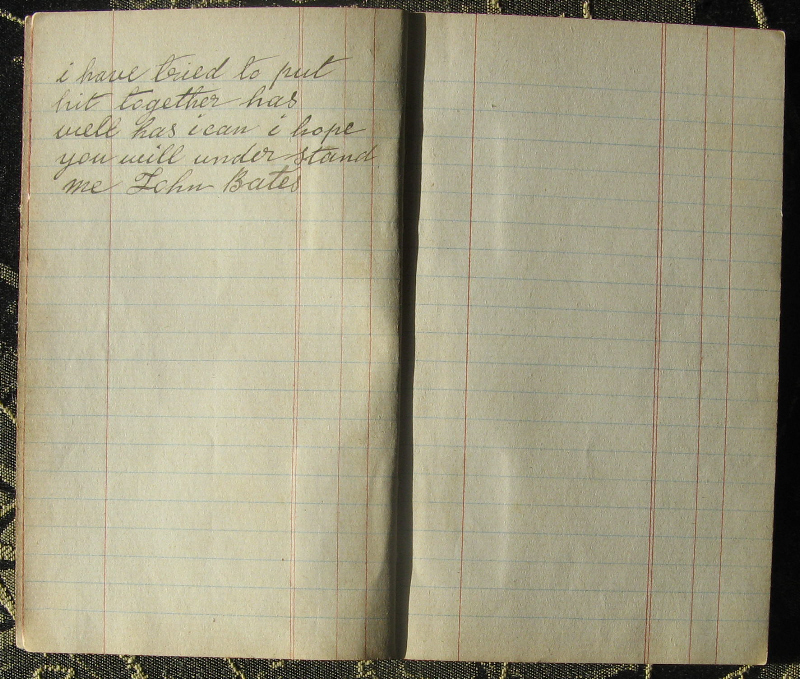 i have tried to put
hit together has
well has i can i hope
you will under stand
me John Bates